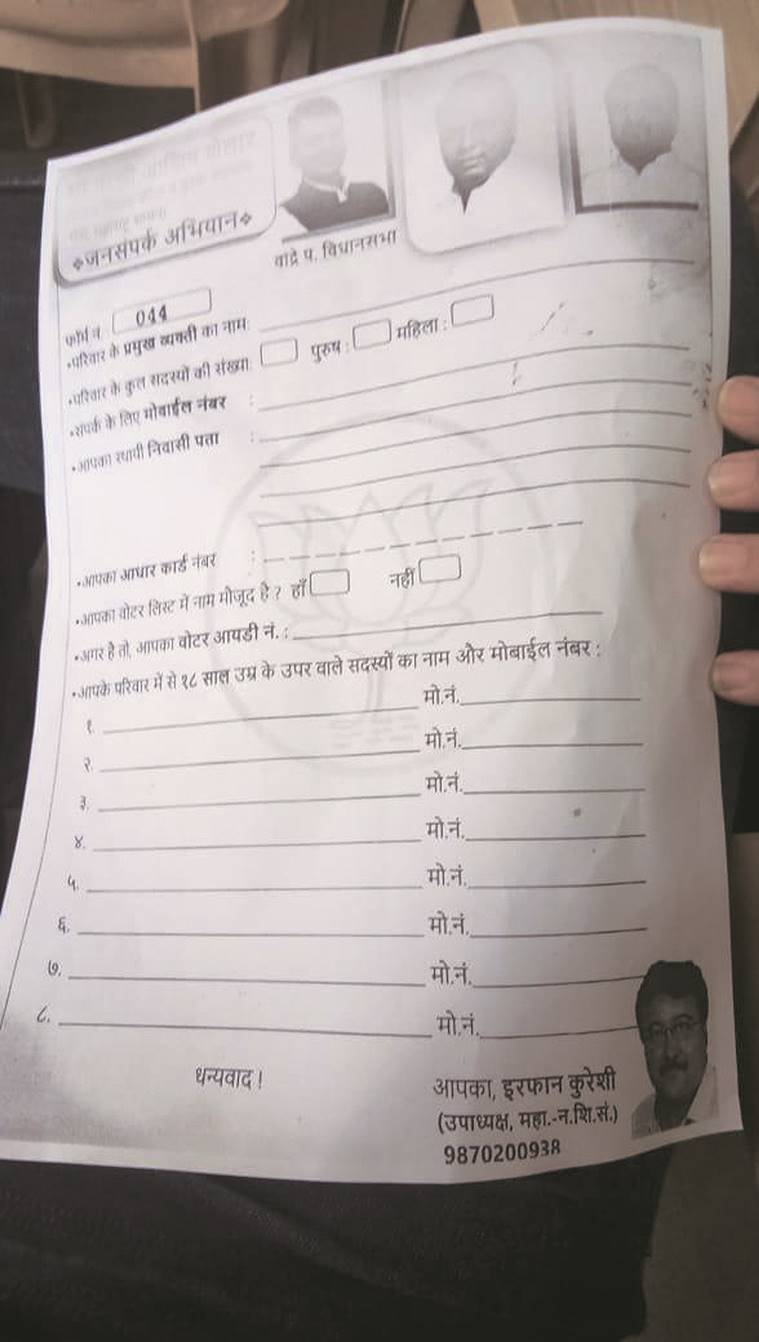 ❖जनसंपर्क अभियान❖
वांद्रे प. विधानसभा
फॉर्म नं 044
•परिवार के प्रमुख व्यक्ती का नाम:
•परिवार के कुल सदस्यों की संख्या पुरुष : महिला :
•संपर्क के लिए मोबाईल नंबर :
•आपका स्थायी निवासी पता :
•आपका आधार कार्ड नंबर :
•आपका वोटर लिस्ट में नाम मौजूद है ? हाँ नहीं
•अगर है तो, आपका वोटर आयडी नं. :
•आपके परिवार में से १८ साल उम्र के उपर वाले सदस्यों का नाम और मोबाईल नंबर :
१. मो.नं.
२. मो.नं.
३. मो.नं.
४. मो.नं.
५. मो.नं.
६. मो.नं.
७. मो.नं.
८. मो.नं.
धन्यवाद !
आपका, इरफान कुरेशी
(उपाध्यक्ष, महा.-न.शि.सं.)
9870200938